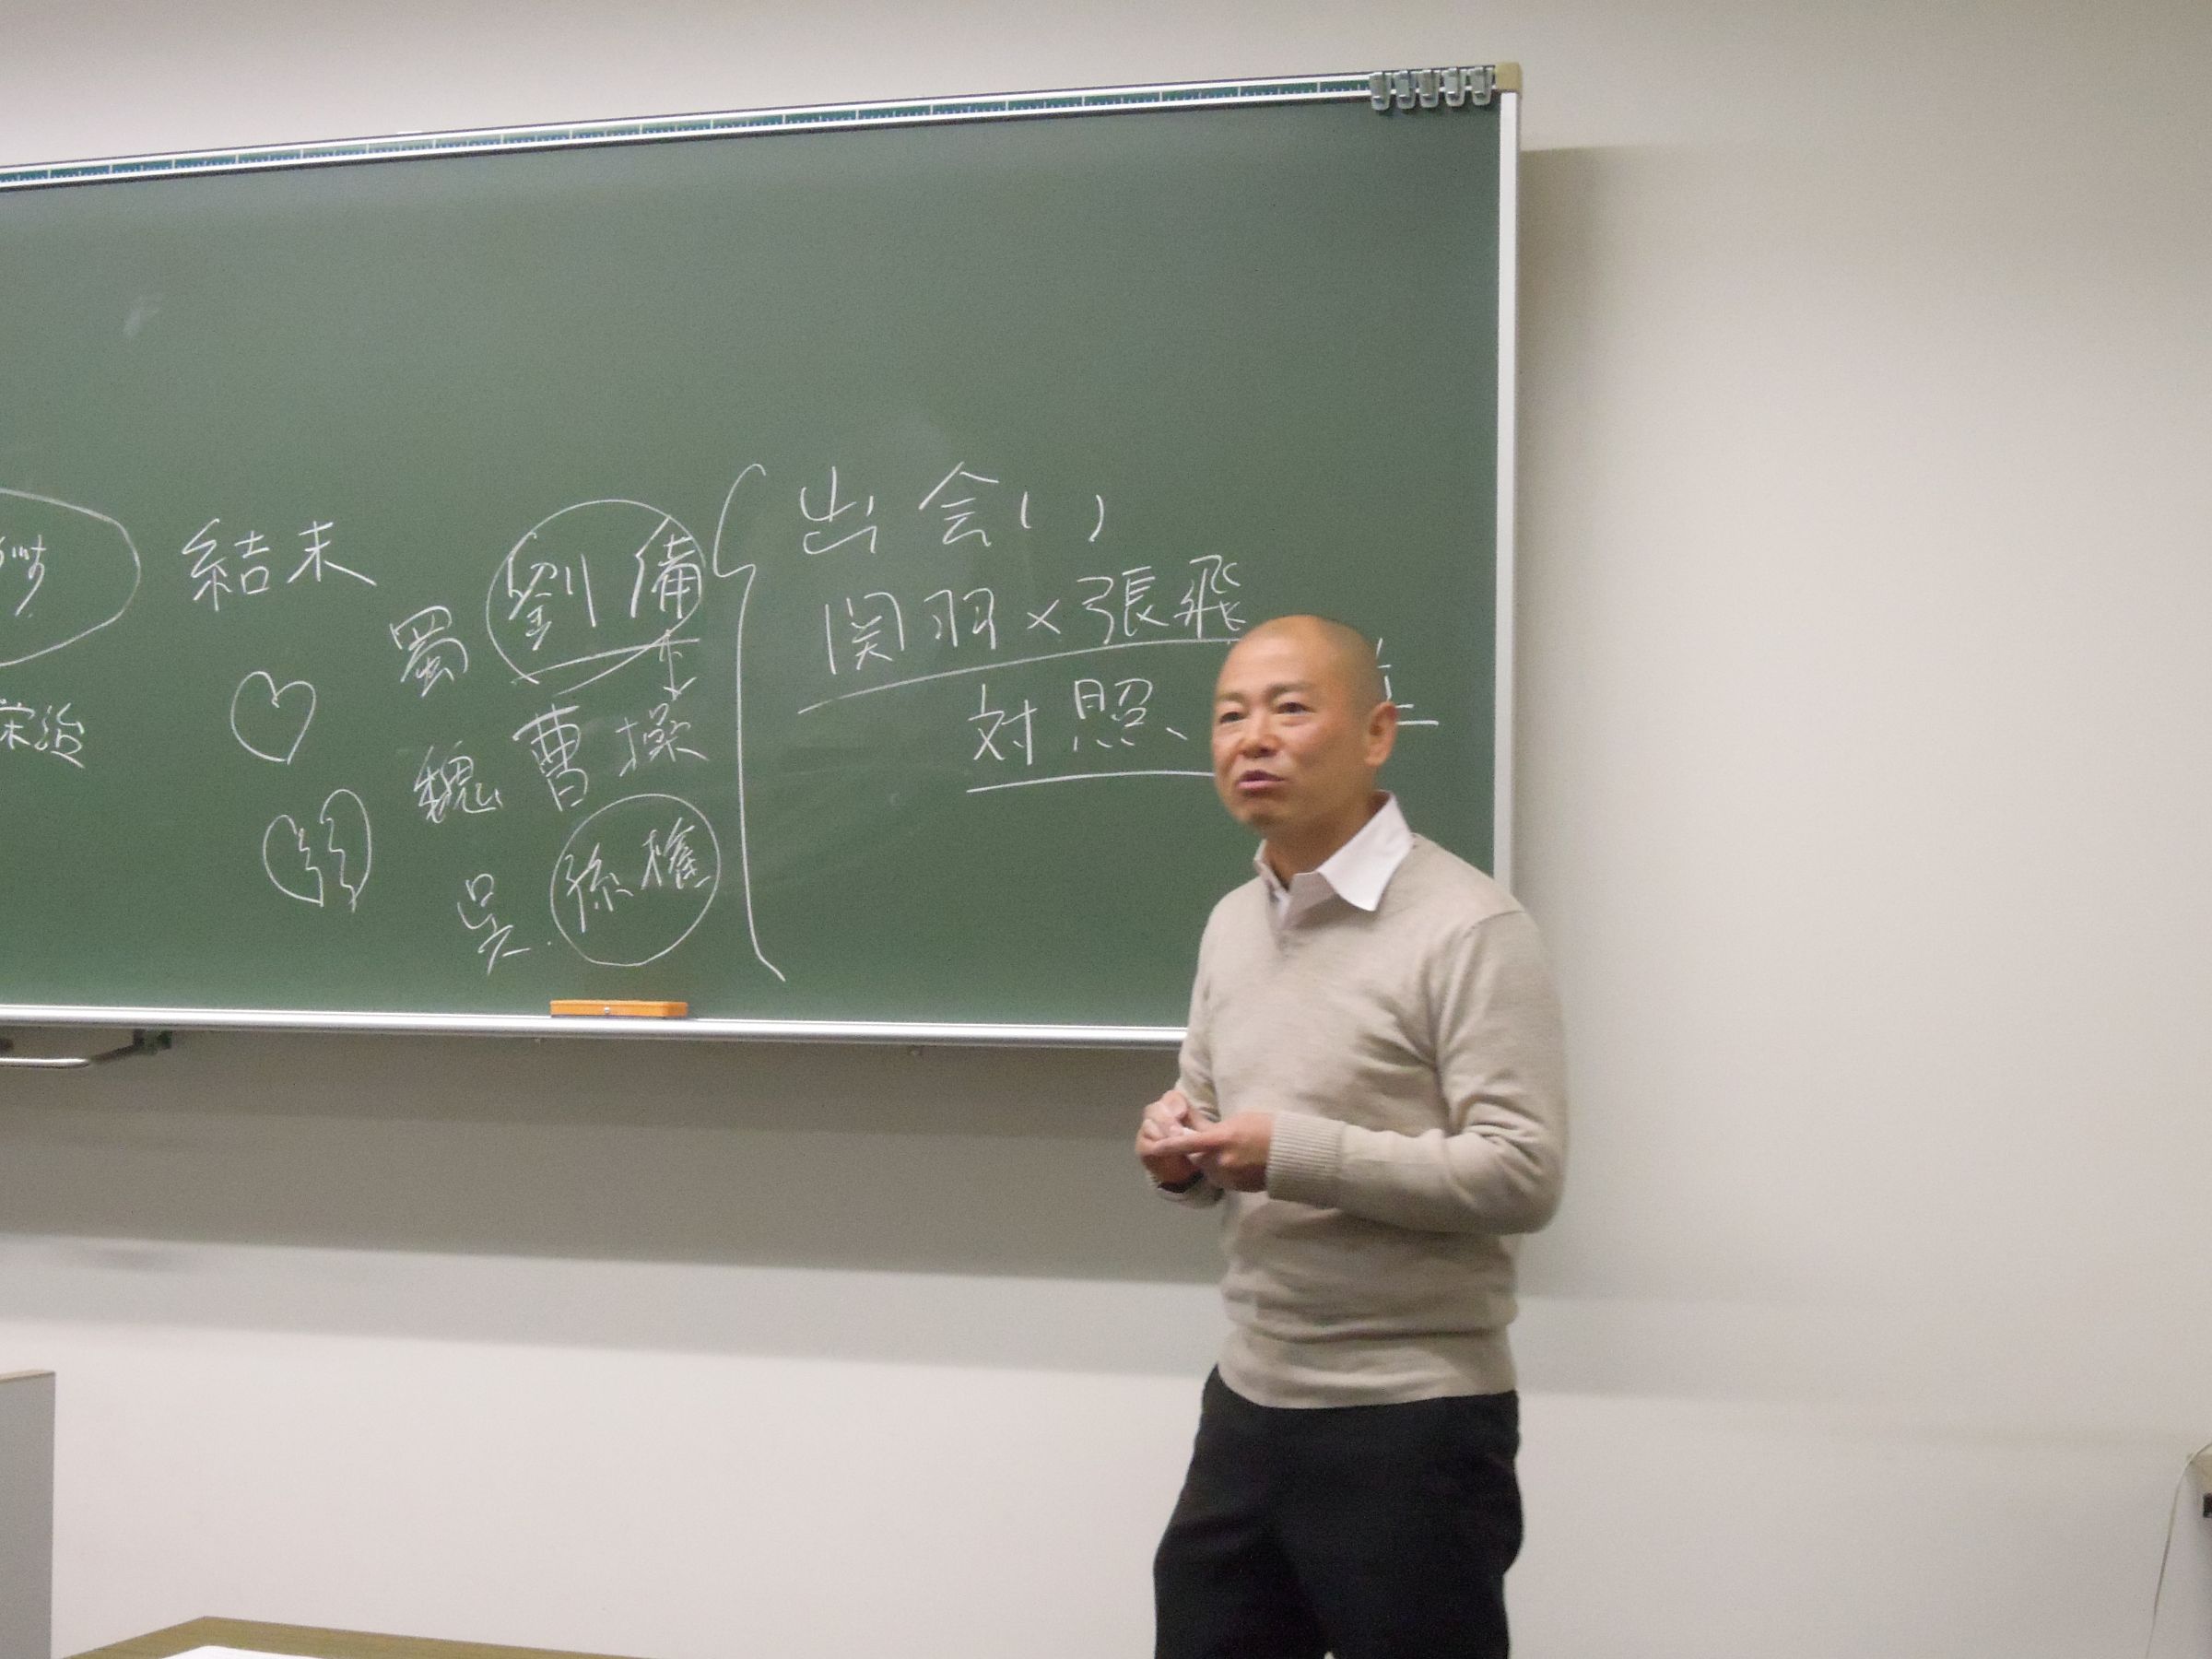 結末
蜀 劉備
魏 曹操
呉 孫権
出会い
関羽×張飛
対照、